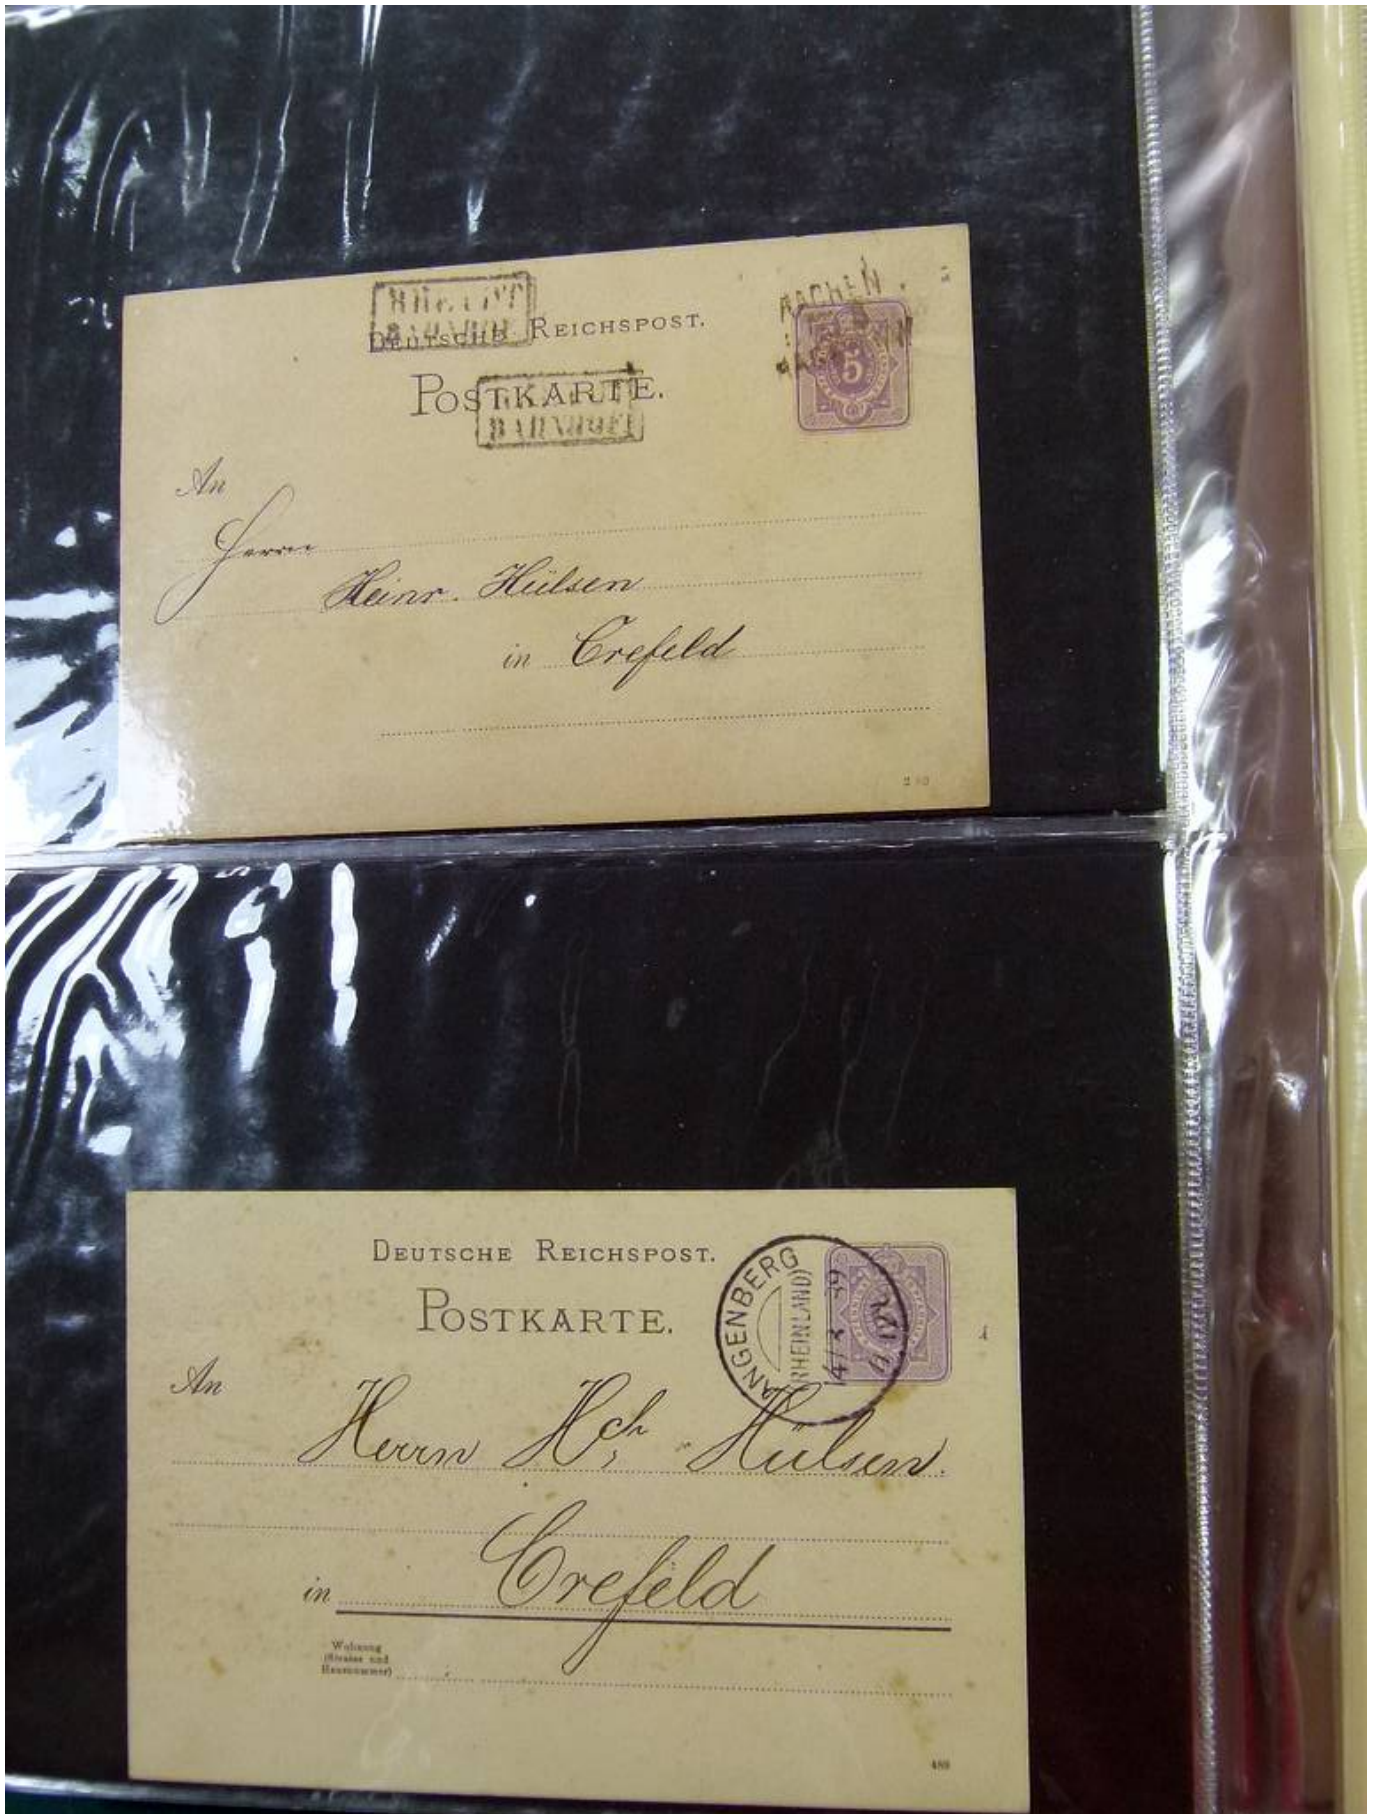 BAHNHOF
DEUTSCHE REICHSPOST.
AACHEN
5
POSTKARTE.
BAHNHOF
An
Herrn
Heinr. Hülsen
in Crefeld
DEUTSCHE REICHSPOST.
LANGENBERG
(RHEINLAND)
POSTKARTE.
An
Herrn Hch Hülsen.
in Crefeld
Wohnung
(Strasse und
Hausnummer)
489